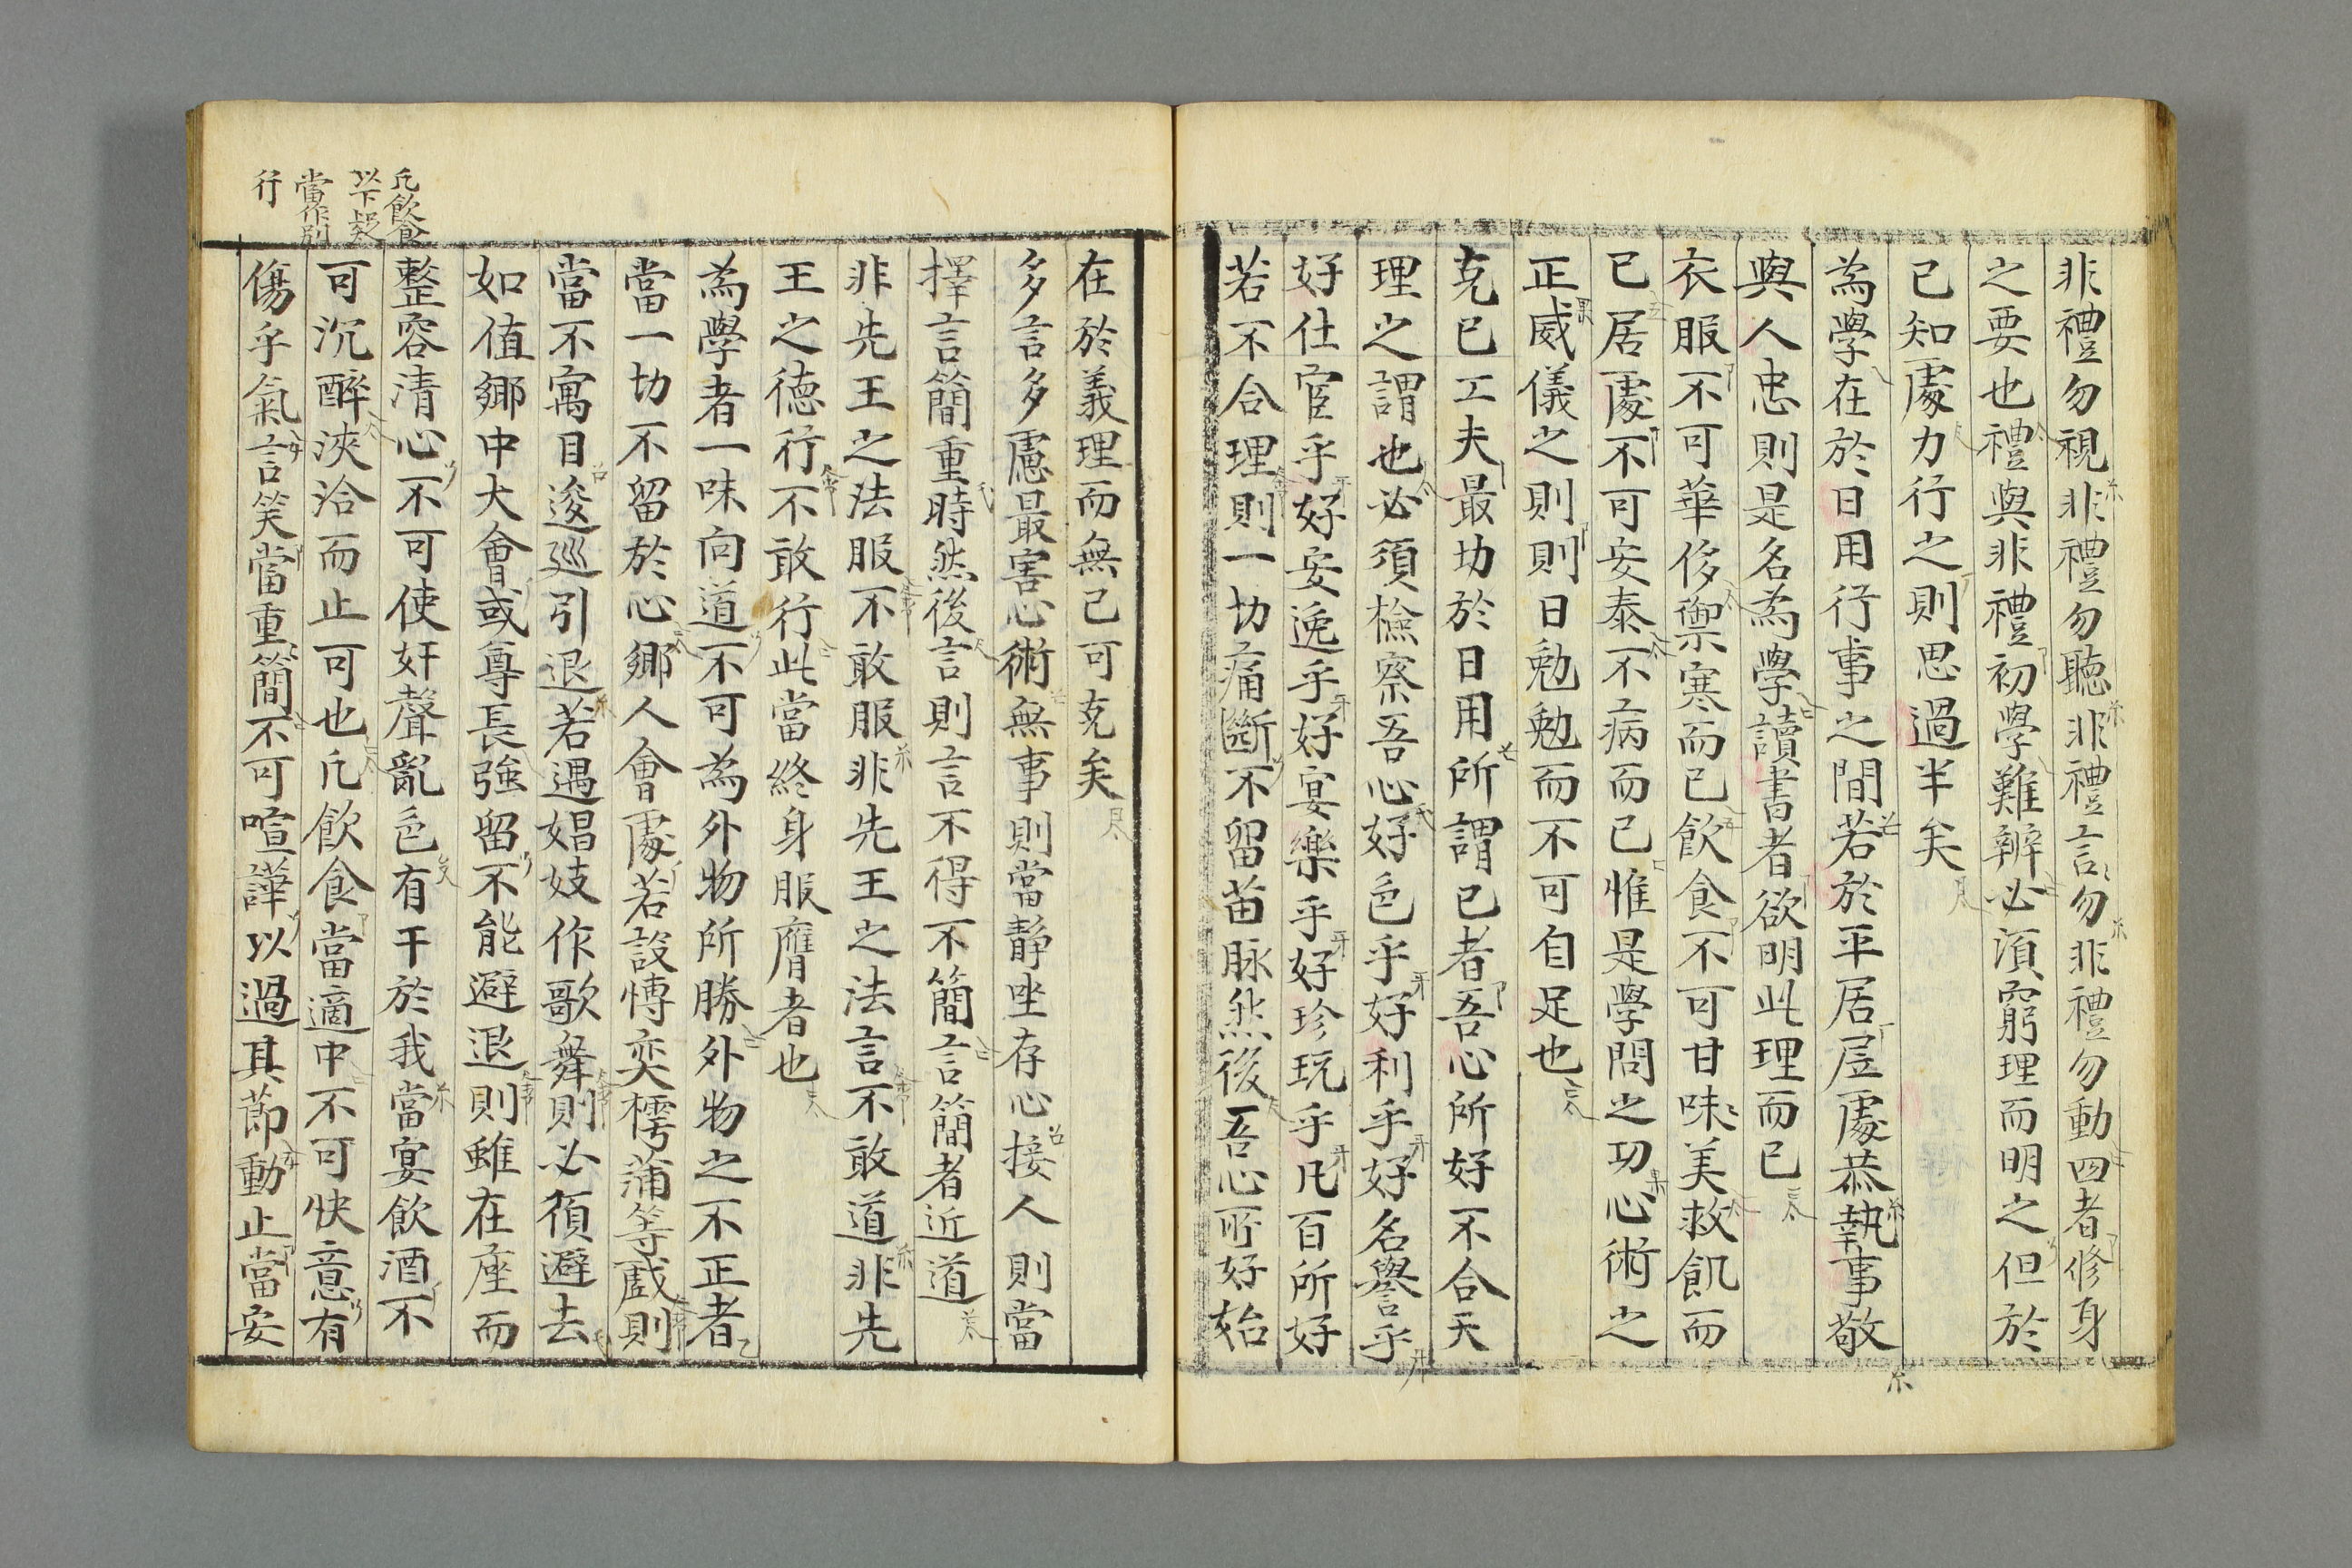 非禮勿視非禮勿聽非禮勿言勿非禮勿動四者修身
之要也禮與非禮初學難辨必須窮理而明之但於
已知處力行之則思過半矣
為學在於日用行事之間若於平居居處恭執事敬
與人忠則是名為學讀書者欲明此理而已
衣服不可華侈禦寒而已飲食不可甘味美救飢而
已居處不可安泰不病而已惟是學問之功心術之
正威儀之則則日勉勉而不可自足也
克己工夫最切於日用所謂己者吾心所好不合天
理之謂也必須檢察吾心好色乎好利乎好名譽乎
好仕宦乎好安逸乎好宴樂乎好珍玩乎凡百所好
若不合理則一切痛斷不留苗脉然後吾心所好始
在於義理而無己可克矣
多言多慮最害心術無事則當靜坐存心接人則當
擇言簡重時然後言則言不得不簡言簡者近道
非先王之法服不敢服非先王之法言不敢道非先
王之德行不敢行此當終身服膺者也
為學者一味向道不可為外物所勝外物之不正者
當一切不留於心鄉人會處若設慱奕樗蒲等戲則
當不寓目逡巡引退若遇娼妓作歌舞則必須避去
如值鄉中大會或尊長強留不能避退則雖在座而
整容清心不可使奸聲亂色有干於我當宴飲酒不
可沉醉浹洽而止可也凡飲食當適中不可快意有
傷乎氣言笑當重簡不可喧譁以過其節動止當安
凡飲食
以下疑
當作別
行